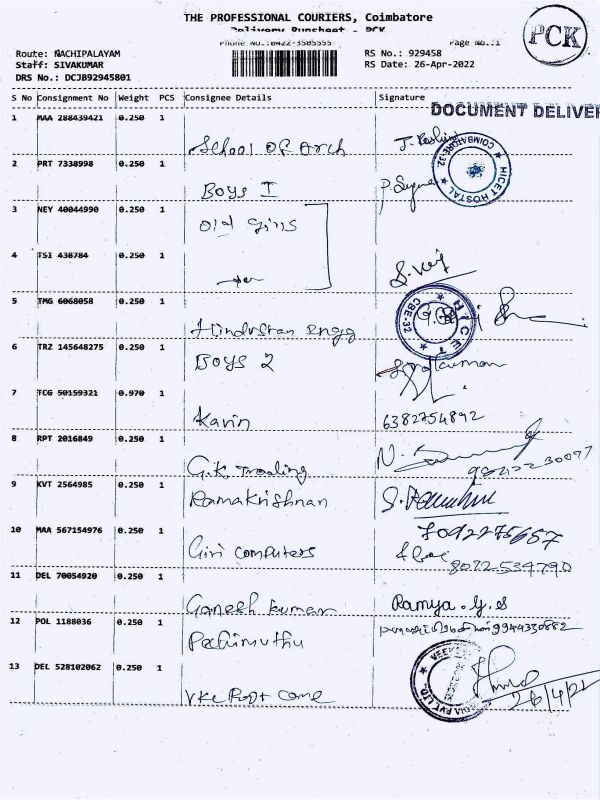 THE PROFESSIONAL COURIERS, Coimbatore
Delivery Runsheet - PCK
Phone No.:0422-3505555 Page No.:1
PCK
Route: NACHIPALAYAM RS No.: 929458
Staff: SIVAKUMAR RS Date: 26-Apr-2022
DRS No.: DCJB92945801
S No Consignment No Weight PCS Consignee Details Signature
DOCUMENT DELIVER
1 MAA 288439421 0.250 1
School of Arch
COIMBATORE-32. HICET HOSTAL
2 PRT 7338998 0.250 1
Boys I
3 NEY 40044990 0.250 1
old girls
4 TSI 438784 0.250 1
5 TMG 6068058 0.250 1
Hindustan engg
HICET CBE-32
6 TRZ 145648275 0.250 1
Boys 2 Sivakumar
7 TCG 50159321 0.970 1
Kavin 6382754892
8 RPT 2016849 0.250 1
G.K. Trading
9 KVT 2564985 0.250 1
Ramakrishnan
10 MAA 567154976 0.250 1
Giri computers 8072534790
11 DEL 70054920 0.250 1
Ganesh kumar Ramya.y.s
12 POL 1188036 0.250 1
Pachimuthu 9944330882
13 DEL 528102062 0.250 1
26/4/22